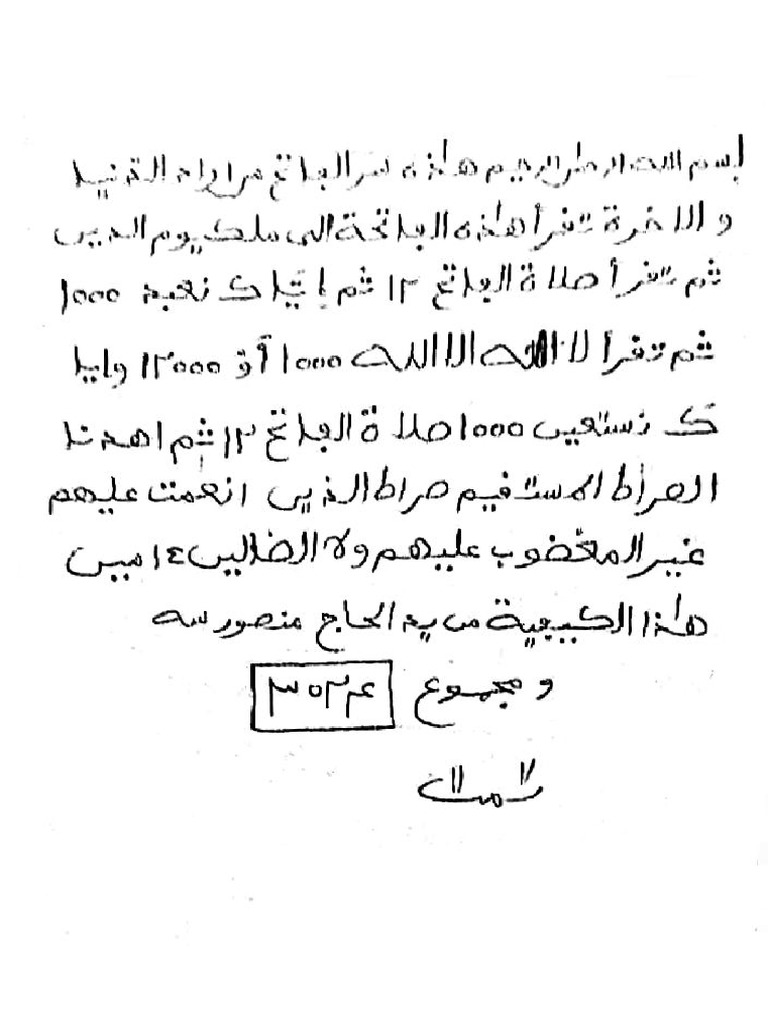 بسم الله الرحمن الرحيم هاذه سر الفاتح من اراد الدنيا
و الاخرة تقرأ هاذه الفاتحة الى ملك يوم الدين
ثم تقرأ صلاة الفاتح ١٢ ثم إياك نعبد 1000
ثم تقرأ لا اله الا الله 1000 أو ١٢000 وايا
ك نستعين 1000 صلاة الفاتح ١٢ ثم اهدنا
الصراط المستقيم صراط الذين انعمت عليهم
غير المغضوب عليهم ولا الضالين ١٤ ميين
هاذا الكيفية من يد الحاج منصور سه
و مجموع
تمت